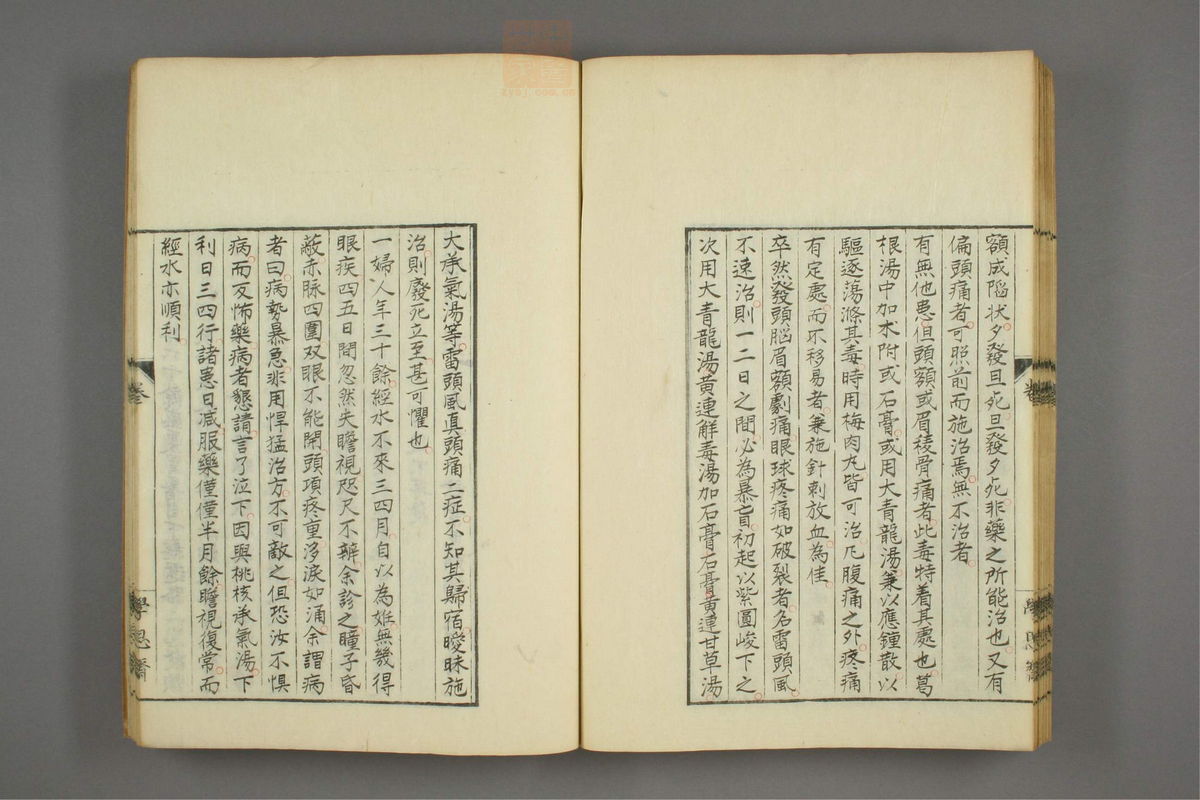 額成陷状夕發旦死旦發夕死非藥之所能治也又有
偏頭痛者可照前而施治焉無不治者
有無他患但頭額或眉稜骨痛者此毒特着其處也葛
根湯中加木附或石膏或用大青龍湯兼以應鐘散以
驅逐蕩滌其毒時用梅肉丸皆可治凡腹痛之外疼痛
有定處而不移易者兼施針刺放血為佳
卒然發頭腦眉額劇痛眼球疼痛如破裂者名雷頭風
不速治則一二日之間必為暴盲初起以紫圓峻下之
次用大青龍湯黄連解毒湯加石膏石膏黄連甘草湯
大承氣湯等雷頭風真頭痛二症不知其歸宿曖昧施
治則廢死立至甚可懼也
一婦人年三十餘經水不來三四月自以為姙無幾得
眼疾四五日間忽然失瞻視咫尺不辨余診之瞳子昏
蔽赤脉四圍双眼不能開頭項疼重涕涙如涌余謂病
者曰病勢暴急非用悍猛治方不可敵之但恐汝不惧
病而反怖藥病者懇請言了泣下因與桃核承氣湯下
利日三四行諸患日減服藥僅僅半月餘瞻視復常而
經水亦順利
卷
學思齋
zysj.com.cn